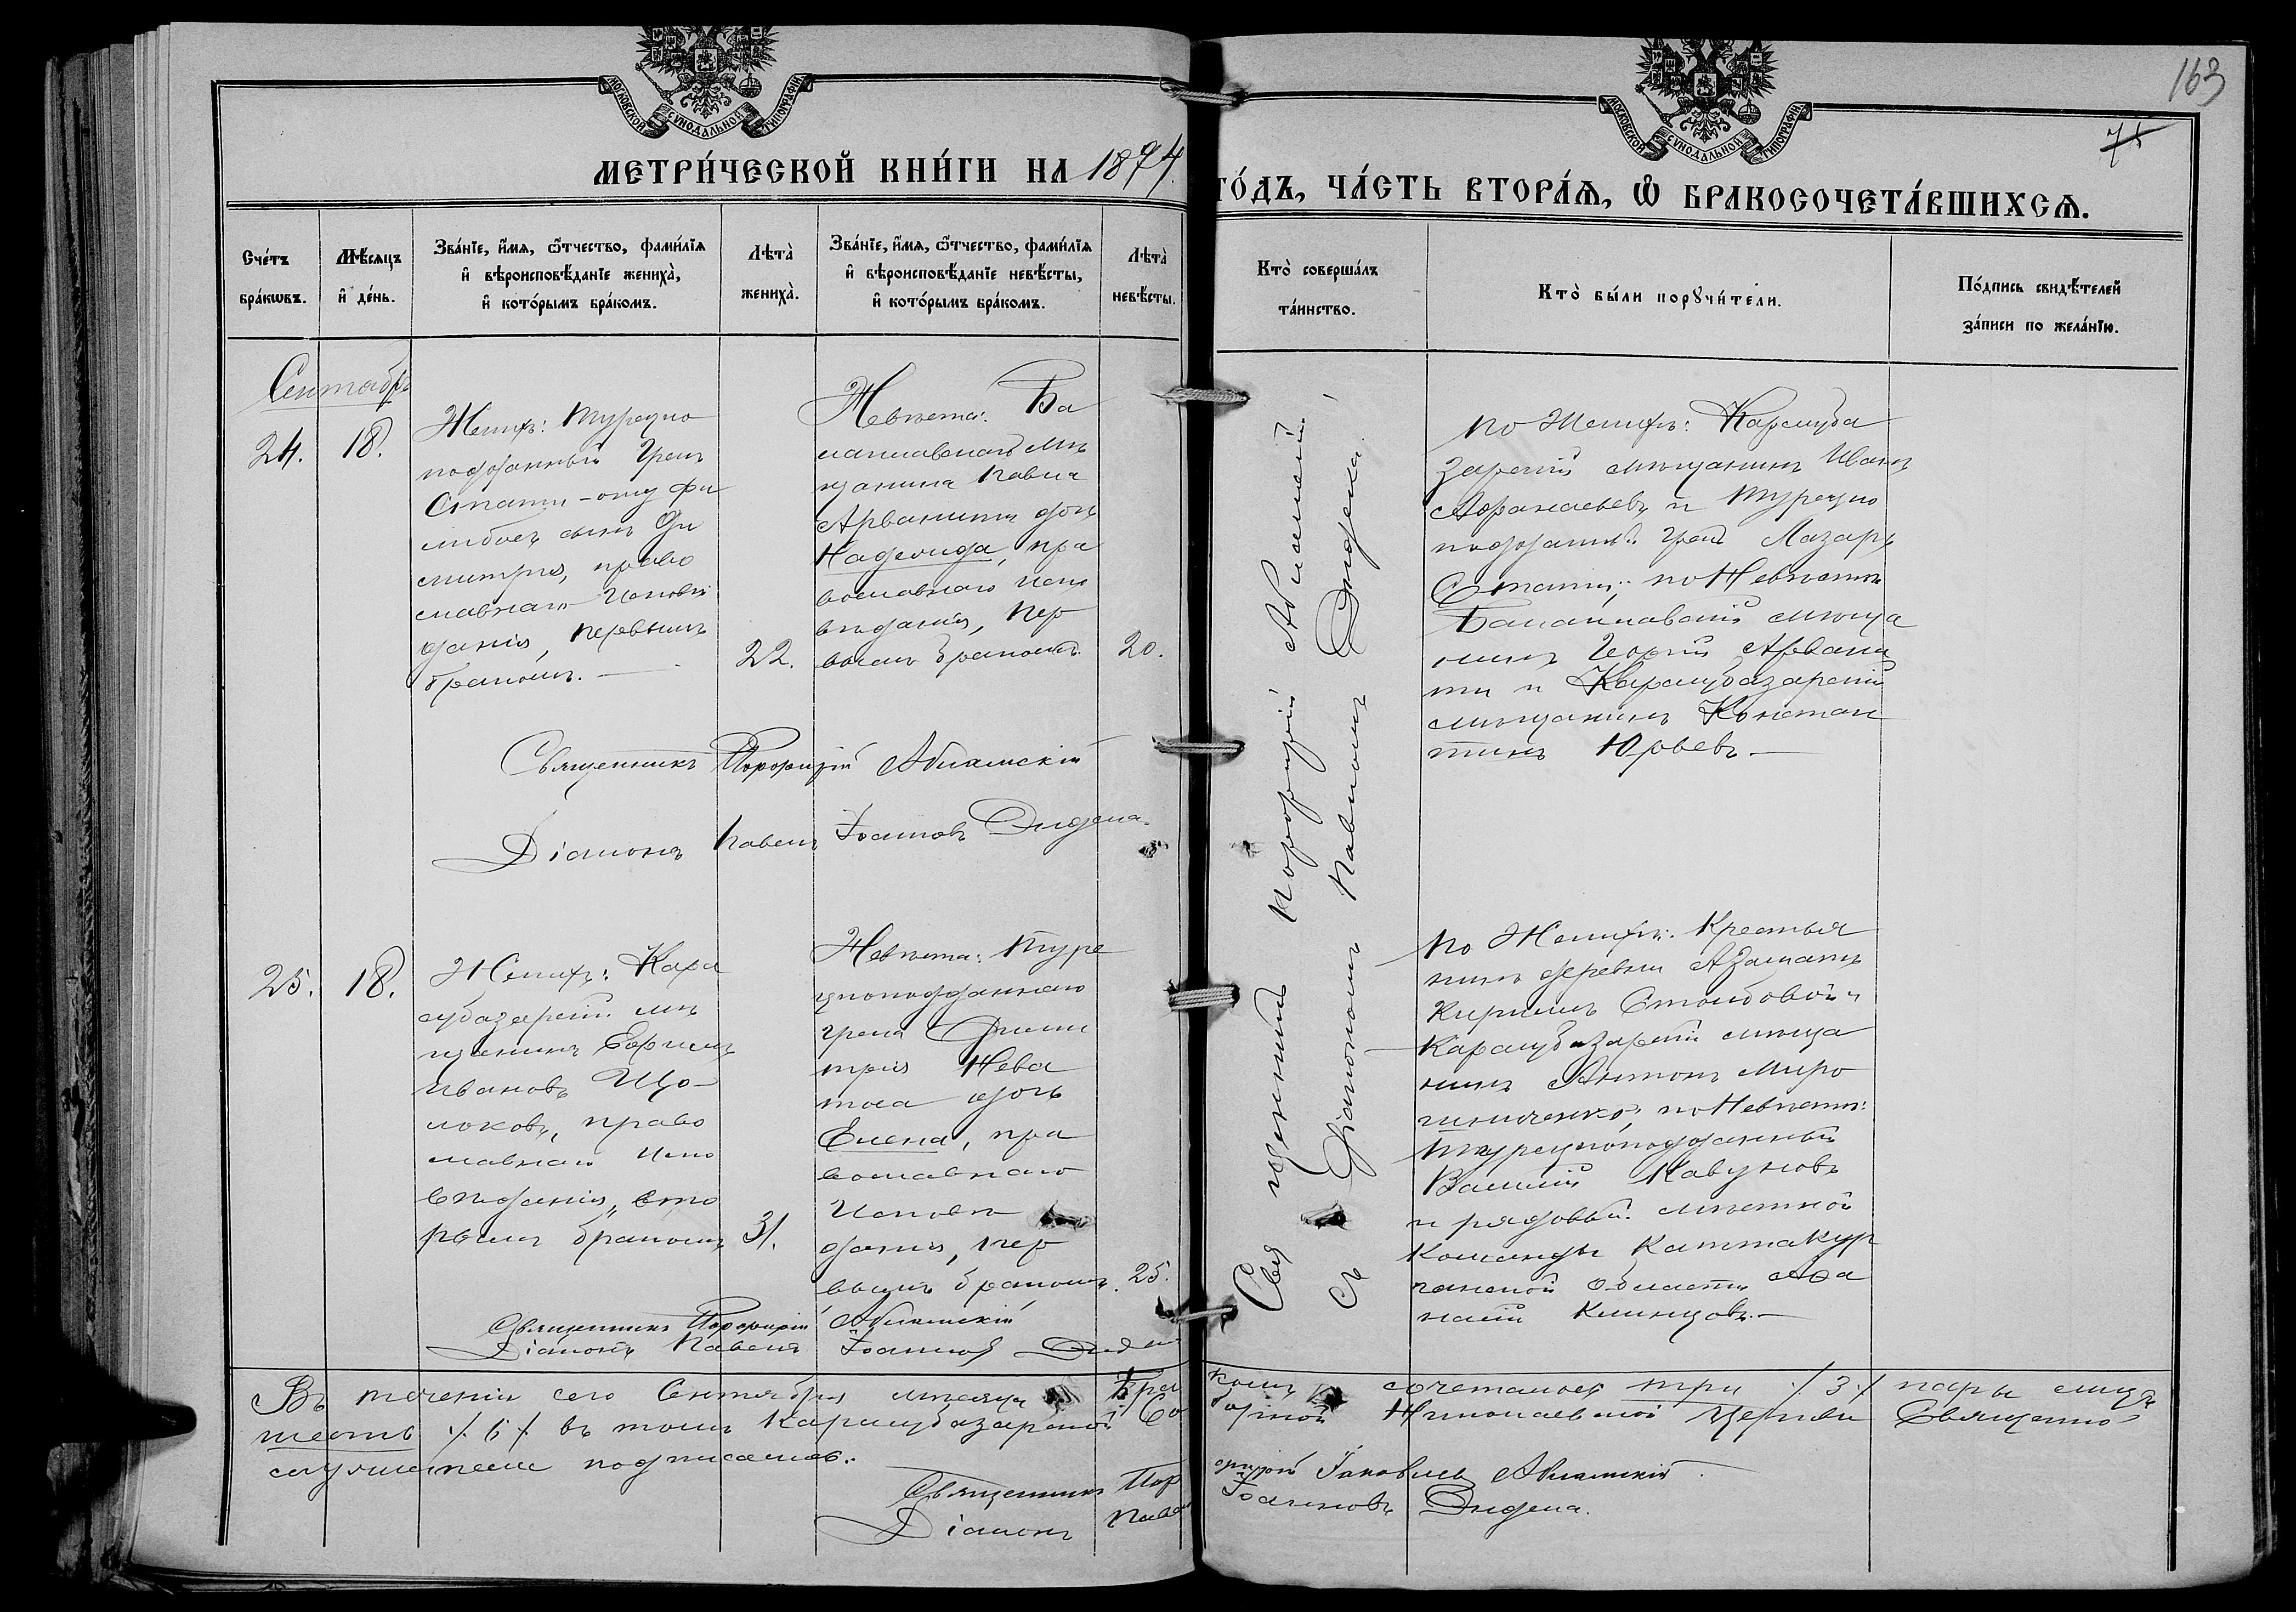 МОСКОВСКОЙ СУНОДАЛЬНОЙ ТИПОГРАФІИ
МОСКОВСКОЙ СУНОДАЛЬНОЙ ТИПОГРАФІИ
163
75
МЕТРИ́ЧЕСКОЙ КНИ́ГИ НА 1874.
ГО́ДЪ, ЧА́СТЬ ВТОРА́Ѧ, Ѡ БРАКОСОЧЕТА́ВШИХСѦ.
Сче́тъ
бра́кѡвъ.
Мѣ́сяцъ
и де́нь.
Зва́нїе, и́мя, ѻ́тчество, фами́лїя
и вѣроисповѣ́данїе жениха̀,
и кото́рымъ бра́комъ.
Лѣта̀
жениха̀.
Зва́нїе, и́мя, ѻ́тчество, фами́лїя
и вѣроисповѣ́данїе невѣ́сты,
и кото́рымъ бра́комъ.
Лѣта̀
невѣ́сты.
Кто̀ соверша́лъ
та́инство.
Кто̀ бы́ли порꙋчи́тели.
По́дпись свидѣ́телей
за́писи по жела́нїю.
Сентябрь
24.
18.
Женихъ: Турецко
подданный Грекъ
Стати-оглу
сынъ Ди
митрія, право
славнаго Исповѣ
данія, первымъ
бракомъ.
22.
Невѣста: Ба
лаклавскаго мѣ
щанина Павла
Арванити дочь
Надежда, пра
вославнаго Испо
вѣданія, пер
вымъ бракомъ.
20.
Священникъ Порфирій
Діаконъ Павелъ Іоанновъ
Священникъ Порфирій
съ Діакономъ Павломъ
По Женихѣ: Карасуба
зарскій мѣщанинъ Иванъ
Афанасьевъ и Турецко
подданный Грекъ Лазарь
Стати; по Невѣстѣ
Балаклавскій мѣща
нинъ Георгій Арвани
ти и Карасубазарскій
мѣщанинъ Констан
тинъ Юрьевъ.
25.
18.
Женихъ: Кара
субазарскій мѣ
щанинъ Ефимъ
Ивановъ Що-
локовъ, право
славнаго Испо
вѣданія, вто
рымъ бракомъ
31.
Невѣста: Туре
цкоподданнаго
грека Дими
трія Нева
тоса дочь
Елена, пра
вославнаго
Исповѣ
данія, пер
вымъ бракомъ.
25.
Священникъ Порфирій
Діаконъ Павелъ Іоанновъ
По Женихѣ: Крестья
нинъ деревни Азаматъ
Кириллъ Столбовой и
Карасубазарскій мѣща
нинъ Антонъ Миро
шниченко, по Невѣстѣ:
Турецкоподданный
Василій Кавуновъ
и рядовый мѣстной
Команды Каттакур
ганской Области Афа
насій Клинцовъ.
Въ теченіи сего Сентября мѣсяца бракомъ сочеталось три /3/ пары лицъ
шесть /6/ въ томъ Карасубазарской Соборной Николаевской Церкви Священно-
служители подписались.
Священникъ Порфирій
Діаконъ Павелъ Іоанновъ